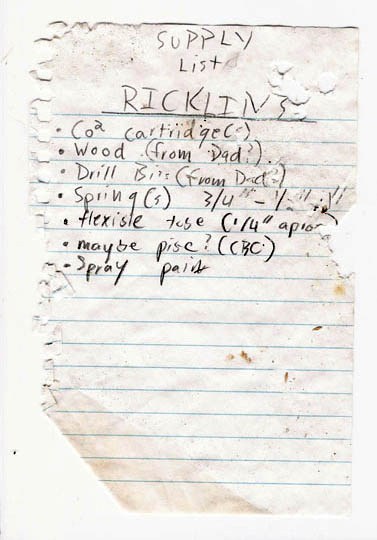 SUPPLY
List
RICKLINS
• Co2 cartridge(s)
• Wood (from Dad?)
• Drill Bits (from Dad?)
• Spring(s) 3/4" - 1/2"
• flexible tube (1/4"
• maybe (CBC)
• Spray paint